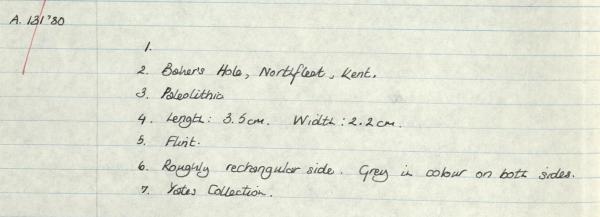 A. 131'80
1.
2. Baker's Hole, Northfleet, Kent.
3. Paleolithic
4. Length: 3.5cm. Width: 2.2cm.
5. Flint.
6. Roughly rechangular side. Grey in colour on both sides.
7. Yates Collection.